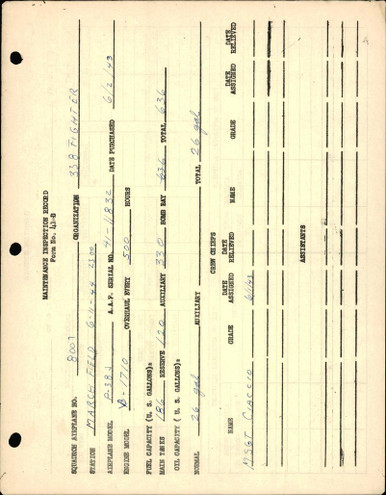 MAINTENANCE INSPECTION RECORD
Form No. 41-B
SQUADRON AIRPLANE NO. 8007 ORGANIZATION 338 FIGHTER
STATION MARCH FIELD 6-11-44 2300
AIRPLANE MODEL P-38J A.A.F. SERIAL NO. 41-11832 DATE PURCHASED 6/2/43
ENGINE MODEL V-1710 OVERHAUL EVERY 500 HOURS
FUEL CAPACITY (U. S. GALLONS):
MAIN TANKS 186 RESERVE 120 AUXILIARY 330 BOMB BAY 636 TOTAL 636
OIL CAPACITY ( U. S. GALLONS):
NORMAL 26 gal AUXILIARY TOTAL 26 gal
CREW CHIEFS
NAME GRADE DATE ASSIGNED DATE RELIEVED NAME GRADE DATE ASSIGNED DATE RELIEVED
M/SGT CIACCIO
ASSISTANTS